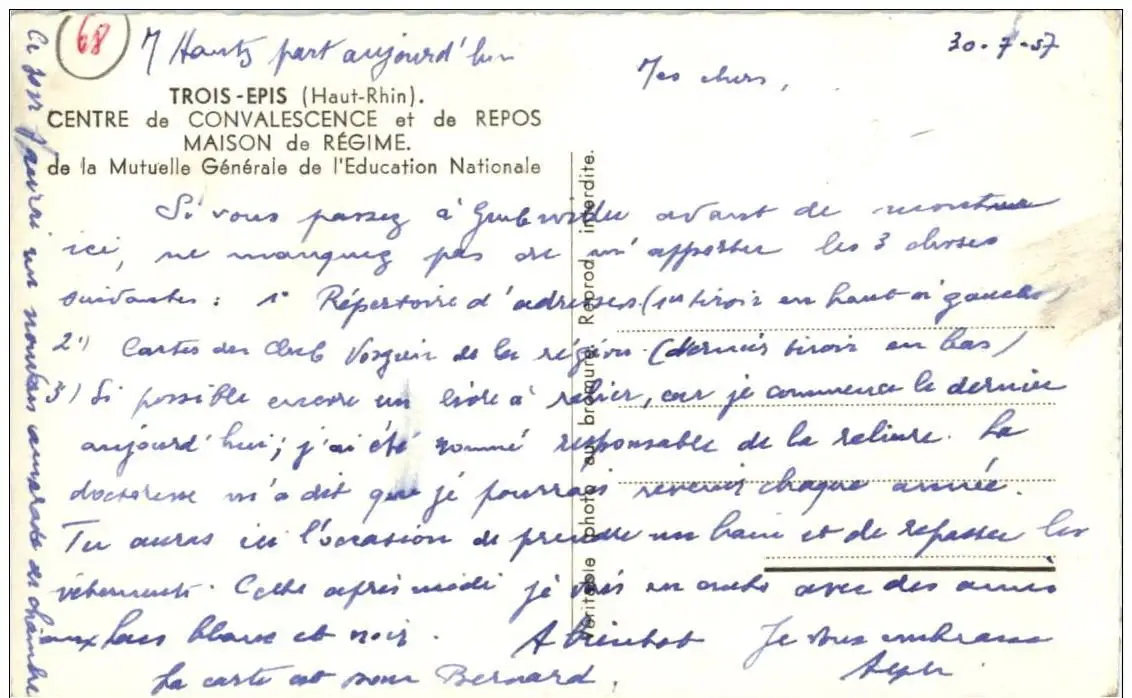 68
M Hantz part aujourd'hui
30-7-57
Mes chers,
TROIS-EPIS (Haut-Rhin).
CENTRE de CONVALESCENCE et de REPOS
MAISON de RÉGIME.
de la Mutuelle Générale de l'Education Nationale
Si vous passez à avant de monter
ici, ne manquez pas de m'apporter les 3 choses
suivantes : 1° Répertoire d'adresses (1er tiroir en haut à gauche)
2°) Cartes du Club Vosgien de la région (dernier tiroir en bas)
3) Si possible encore un livre à relier, car je commence le dernier
aujourd'hui ; j'ai été nommé responsable de la reliure. La
doctoresse m'a dit que je pourrais revenir chaque année.
Tu auras ici l'occasion de prendre un bain et de repasser les
vêtements. Cette après midi je vais en auto avec des amis
aux lacs blanc et noir. A bientôt Je vous embrasse
La carte est pour Bernard.
Ce soir j'aurai un nouveau camarade de chambre
Véritable photo au bromure. Reprod. interdite.